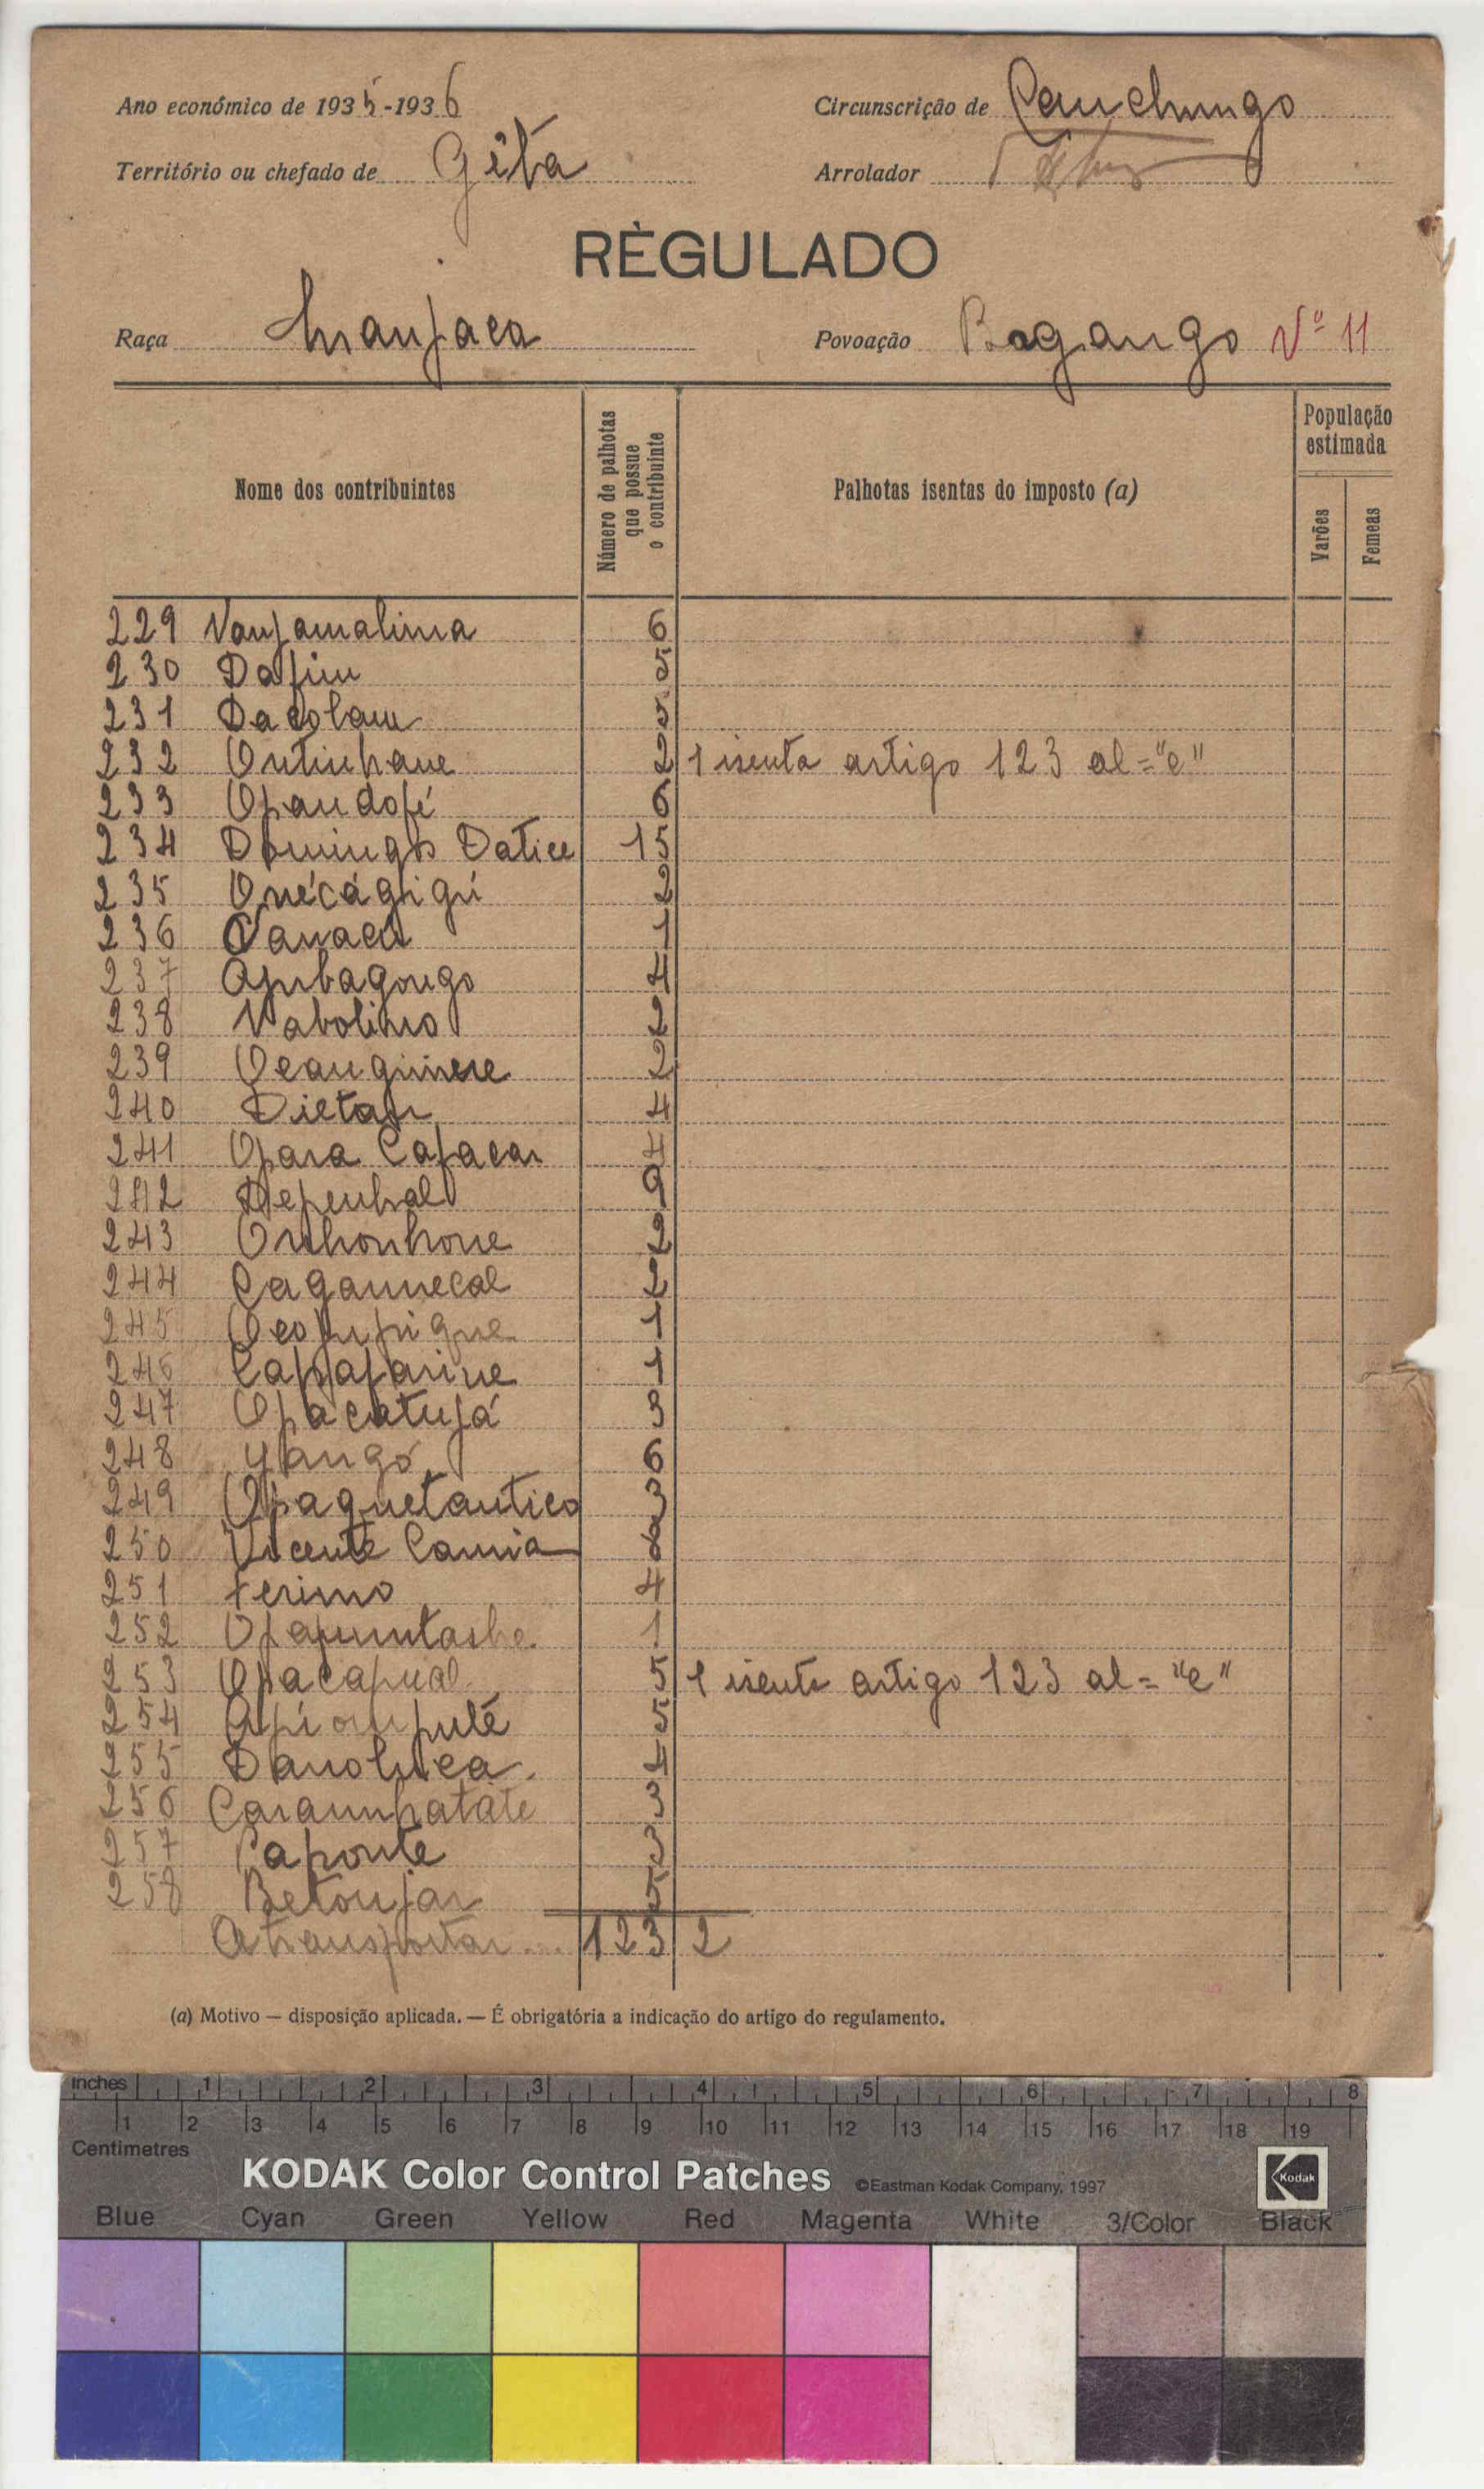 Ano económico de 1935-1936
Circunscrição de Canchungo
Território ou chefado de Gêta
Arrolador
RÈGULADO
Raça Manjaca
Povoação Bogango Nº 11
Nome dos contribuintes
Número de palhotas que possue o contribuinte
Palhotas isentas do imposto (a)
População estimada
Varões
Femeas
229 Nanjamalima 6
230 Dafim 5
231 Dacolam 5
232 2 1 isenta artigo 123 al="e"
233 Opandofé 6
234 Domingos Datice 15
235 2
236 1
237 Apibagongo 4
238 Nabolimo 2
239 2
240 Dietan 4
241 Opara Cafacan 4
242 Depenhal 9
243 Onhonhone 2
244 Cagannecal 2
245 1
246 Capafarine 1
247 Opacatujá 3
248 Yangó 6
249 Opaquetantico 3
250 Vicente Camia 8
251 Ferimo 4
252 1
253 Opacapual 5 1 isenta artigo 123 al= "e"
254 5
255 4
256 3
257 Caponte 3
258 Betonjar 5
A transportar... 123 2
(a) Motivo — disposição aplicada. — É obrigatória a indicação do artigo do regulamento.
inches 1 2 3 4 5 6 7 8
1 2 3 4 5 6 7 8 9 10 11 12 13 14 15 16 17 18 19
Centimetres
KODAK Color Control Patches ©Eastman Kodak Company, 1997
Kodak
Blue Cyan Green Yellow Red Magenta White 3/Color Black